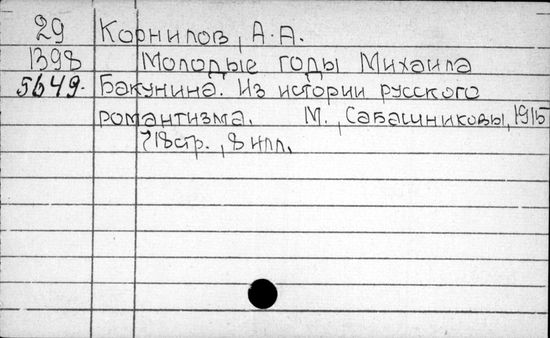 29 Корнилов, А.А.
1398 Молодые годы Михаила
5649. Бакунина. Из истории русского
романтизма. М., Сабашниковы, 1915
718стр., 8 илл.